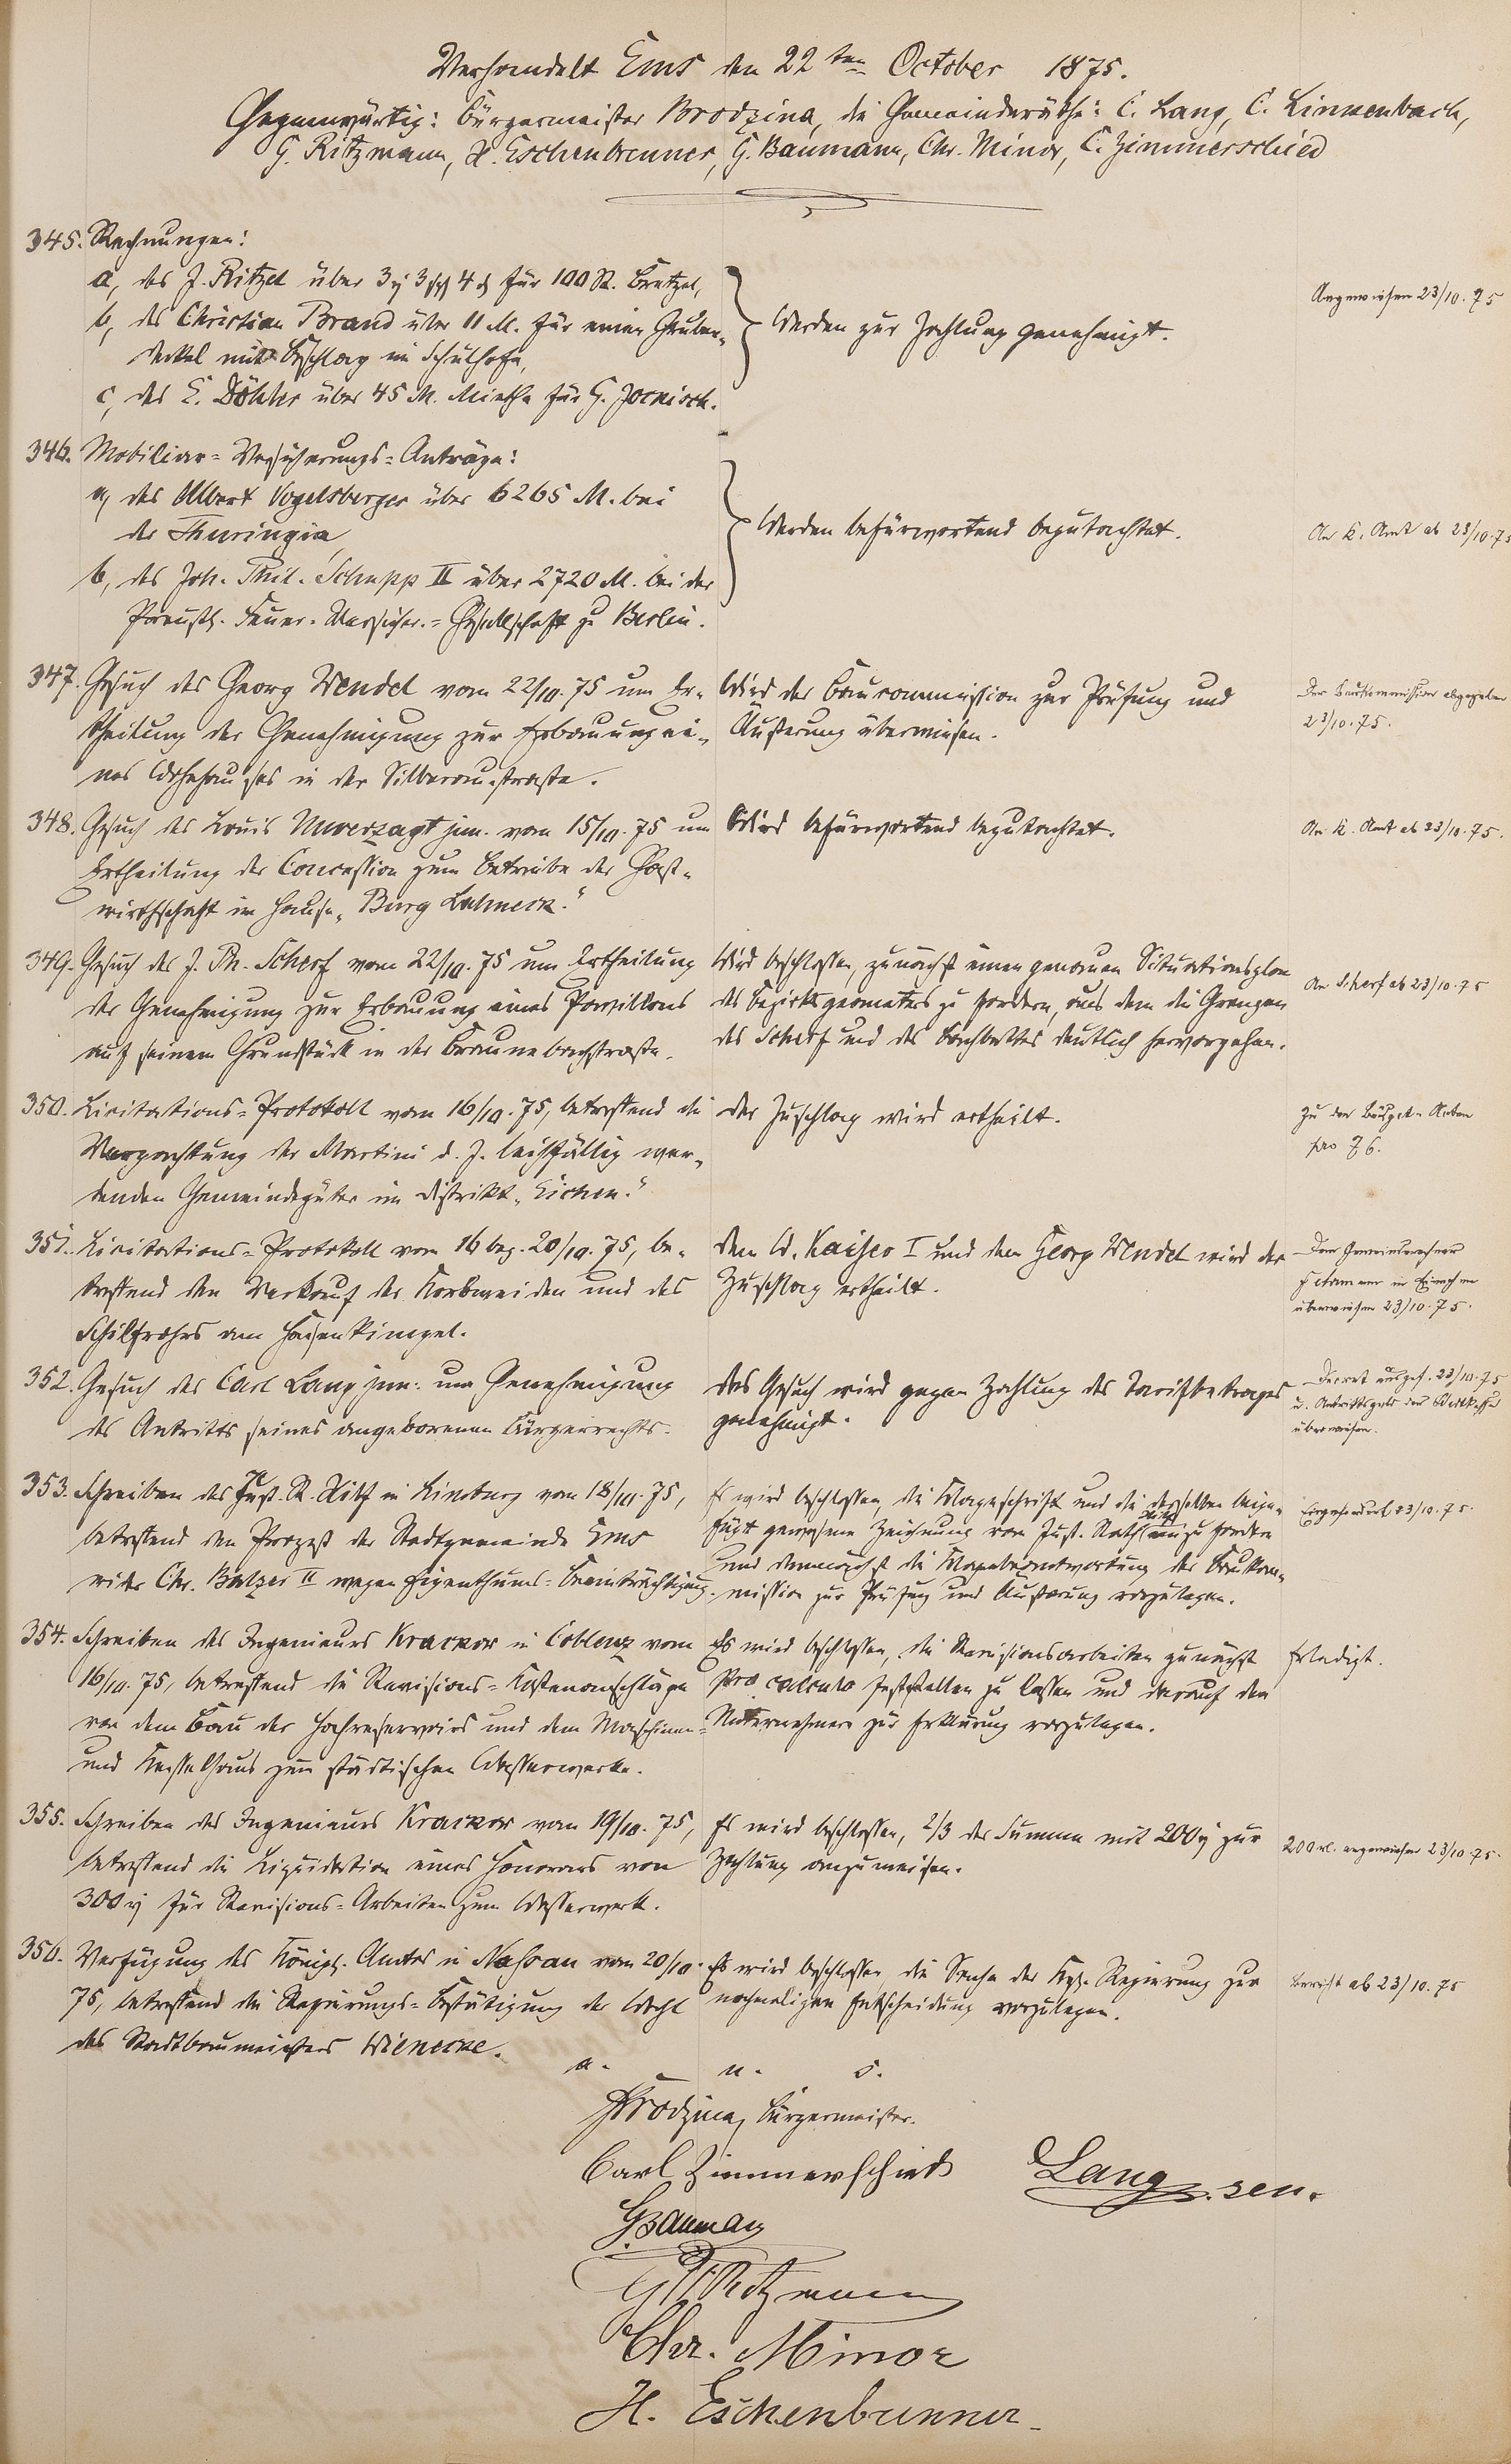 Verhandelt Ems den 22ten October 1875.
Gegenwärtig: Bürgermeister Brodzina, die Gemeinderäthe: C. Lang, C. Linkenbach,
G. Ritzmann, H. Eschenbrenner, G. Baumann, Chr. Minor, C. Zimmerschied
345. Rechnungen:
a, des J. Ritzel über 3 3 4 für 100 St. Bretzel,
b, des Christian Brand über 11 M. für einen Gruben-
deckel mit Beschlag im Schulhofe,
c, des E. Döhler über 45 M. Miethe für G. Jocnisch.
Werden zur Zahlung genehmigt.
Angewiesen 23/10. 75
346. Mobiliar-Versicherungs-Anträge:
a, des Albert Vogelsberger über 6265 M. bei
der Thuringia,
b, des Joh. Phil. Schupp II über 2720 M. bei der
Preußs. Feuer-Versicher.-Gesellschaft zu Berlin.
Werden befürwortend begutachtet.
An K. Amt ab 23/10.75
347. Gesuch des Georg Wendel vom 22/10.75 um Er-
theilung der Genehmigung zur Erbauung ei-
nes Wohnhauses in der Silberaustraße.
Wird der Baucommission zur Prüfung und
Äußerung überwiesen.
Der Baukommission abgegeben
23/10.75.
348. Gesuch des Louis Unverzagt jun. vom 15/10.75 um
Ertheilung der Concession zum Betriebe der Gast-
wirthschaft im Hause "Burg Lahneck."
Wird befürwortend begutachtet.
An K. Amt ab 23/10.75.
349. Gesuch des J. Ph. Scherf vom 22/10.75 um Ertheilung
der Genehmigung zur Erbauung eines Pavillons
auf seinem Grundstück in der Braunebachstraße.
Wird beschlossen, zunächst einen genauen Situationsplan
des Bezirksgeometers zu fordern, aus dem die Grenzen
des Scherf und des Bachbettes deutlich hervorgehen.
An Scherf ab 23/10.75
350. Licitations-Protokoll vom 16/10.75, betreffend die
Verpachtung der Martini d. J. leihfällig wer-
denden Gemeindegüter im Distrikt "Eichen."
Der Zuschlag wird ertheilt.
Zu den Büdget-Akten
pro 76.
351. Licitations-Protokoll vom 16 bez. 20/10.75, be-
treffend den Verkauf der Korbweiden und des
Schilfrohrs am Hasenkümpel.
Dem W. Kaiser I und dem Georg Wendel wird der
Zuschlag ertheilt.
Dem Gemeinderechner
in Einnahme
überwiesen 23/10.75.
352. Gesuch des Carl Lang jun. um Genehmigung
des Antritts seines angeborenen Bürgerrechts.
Das Gesuch wird gegen Zahlung des Tarifbetrages
genehmigt.
Decret ausgef. 23/10.75
u. Antrittsgeld der Stadtkasse
überwiesen.
353. Schreiben des Just. R. Hilf in Limburg vom 18/10.75,
betreffend den Prozeß der Stadtgemeinde Ems
wider Chr. Balzer II wegen Eigenthums-Beeinträchtigung.
Es wird beschlossen, die Klageschrift und die derselben beige-
fügt gewesene Zeichnung vom Just. Rath Hilf einzufordern
und demnächst die Klagebeantwortung der Baukom-
mission zur Prüfung und Äußerung vorzulegen.
Eingefordert 23/10.75.
354. Schreiben des Ingenieurs Krackow in Coblenz vom
16/10.75, betreffend die Revisions-Kostenanschläge
von dem Bau der Hochreservoirs und dem Maschinen-
und Kesselhaus zum städtischen Wasserwerke.
Es wird beschlossen, die Revisionsarbeiten zunächst
pro calculo feststellen zu lassen und darauf den
Unternehmern zur Erklärung vorzulegen.
Erledigt.
355. Schreiben des Ingenieurs Krackow vom 19/10.75,
betreffend die Liquidation eines Honorars von
300 für Revisions-Arbeiten zum Wasserwerk.
Es wird beschlossen, 2/3 der Summe mit 200 zur
Zahlung anzuweisen.
200 angewiesen 23/10.75.
356. Verfügung des Königl. Amtes in Nassau vom 20/10.
75, betreffend die Regierungs-Bestätigung der Wahl
des Stadtbaumeisters Wienecke.
Es wird beschlossen die Sache der Kgl. Regierung zur
nochmaligen Entscheidung vorzulegen.
Bericht ab 23/10.75
a. u. s.
Brodzina, Bürgermeister.
Carl Zimmerschied Lang sen.
G Bauman
G Ritzmann
Chr. Minor
H. Eschenbrenner